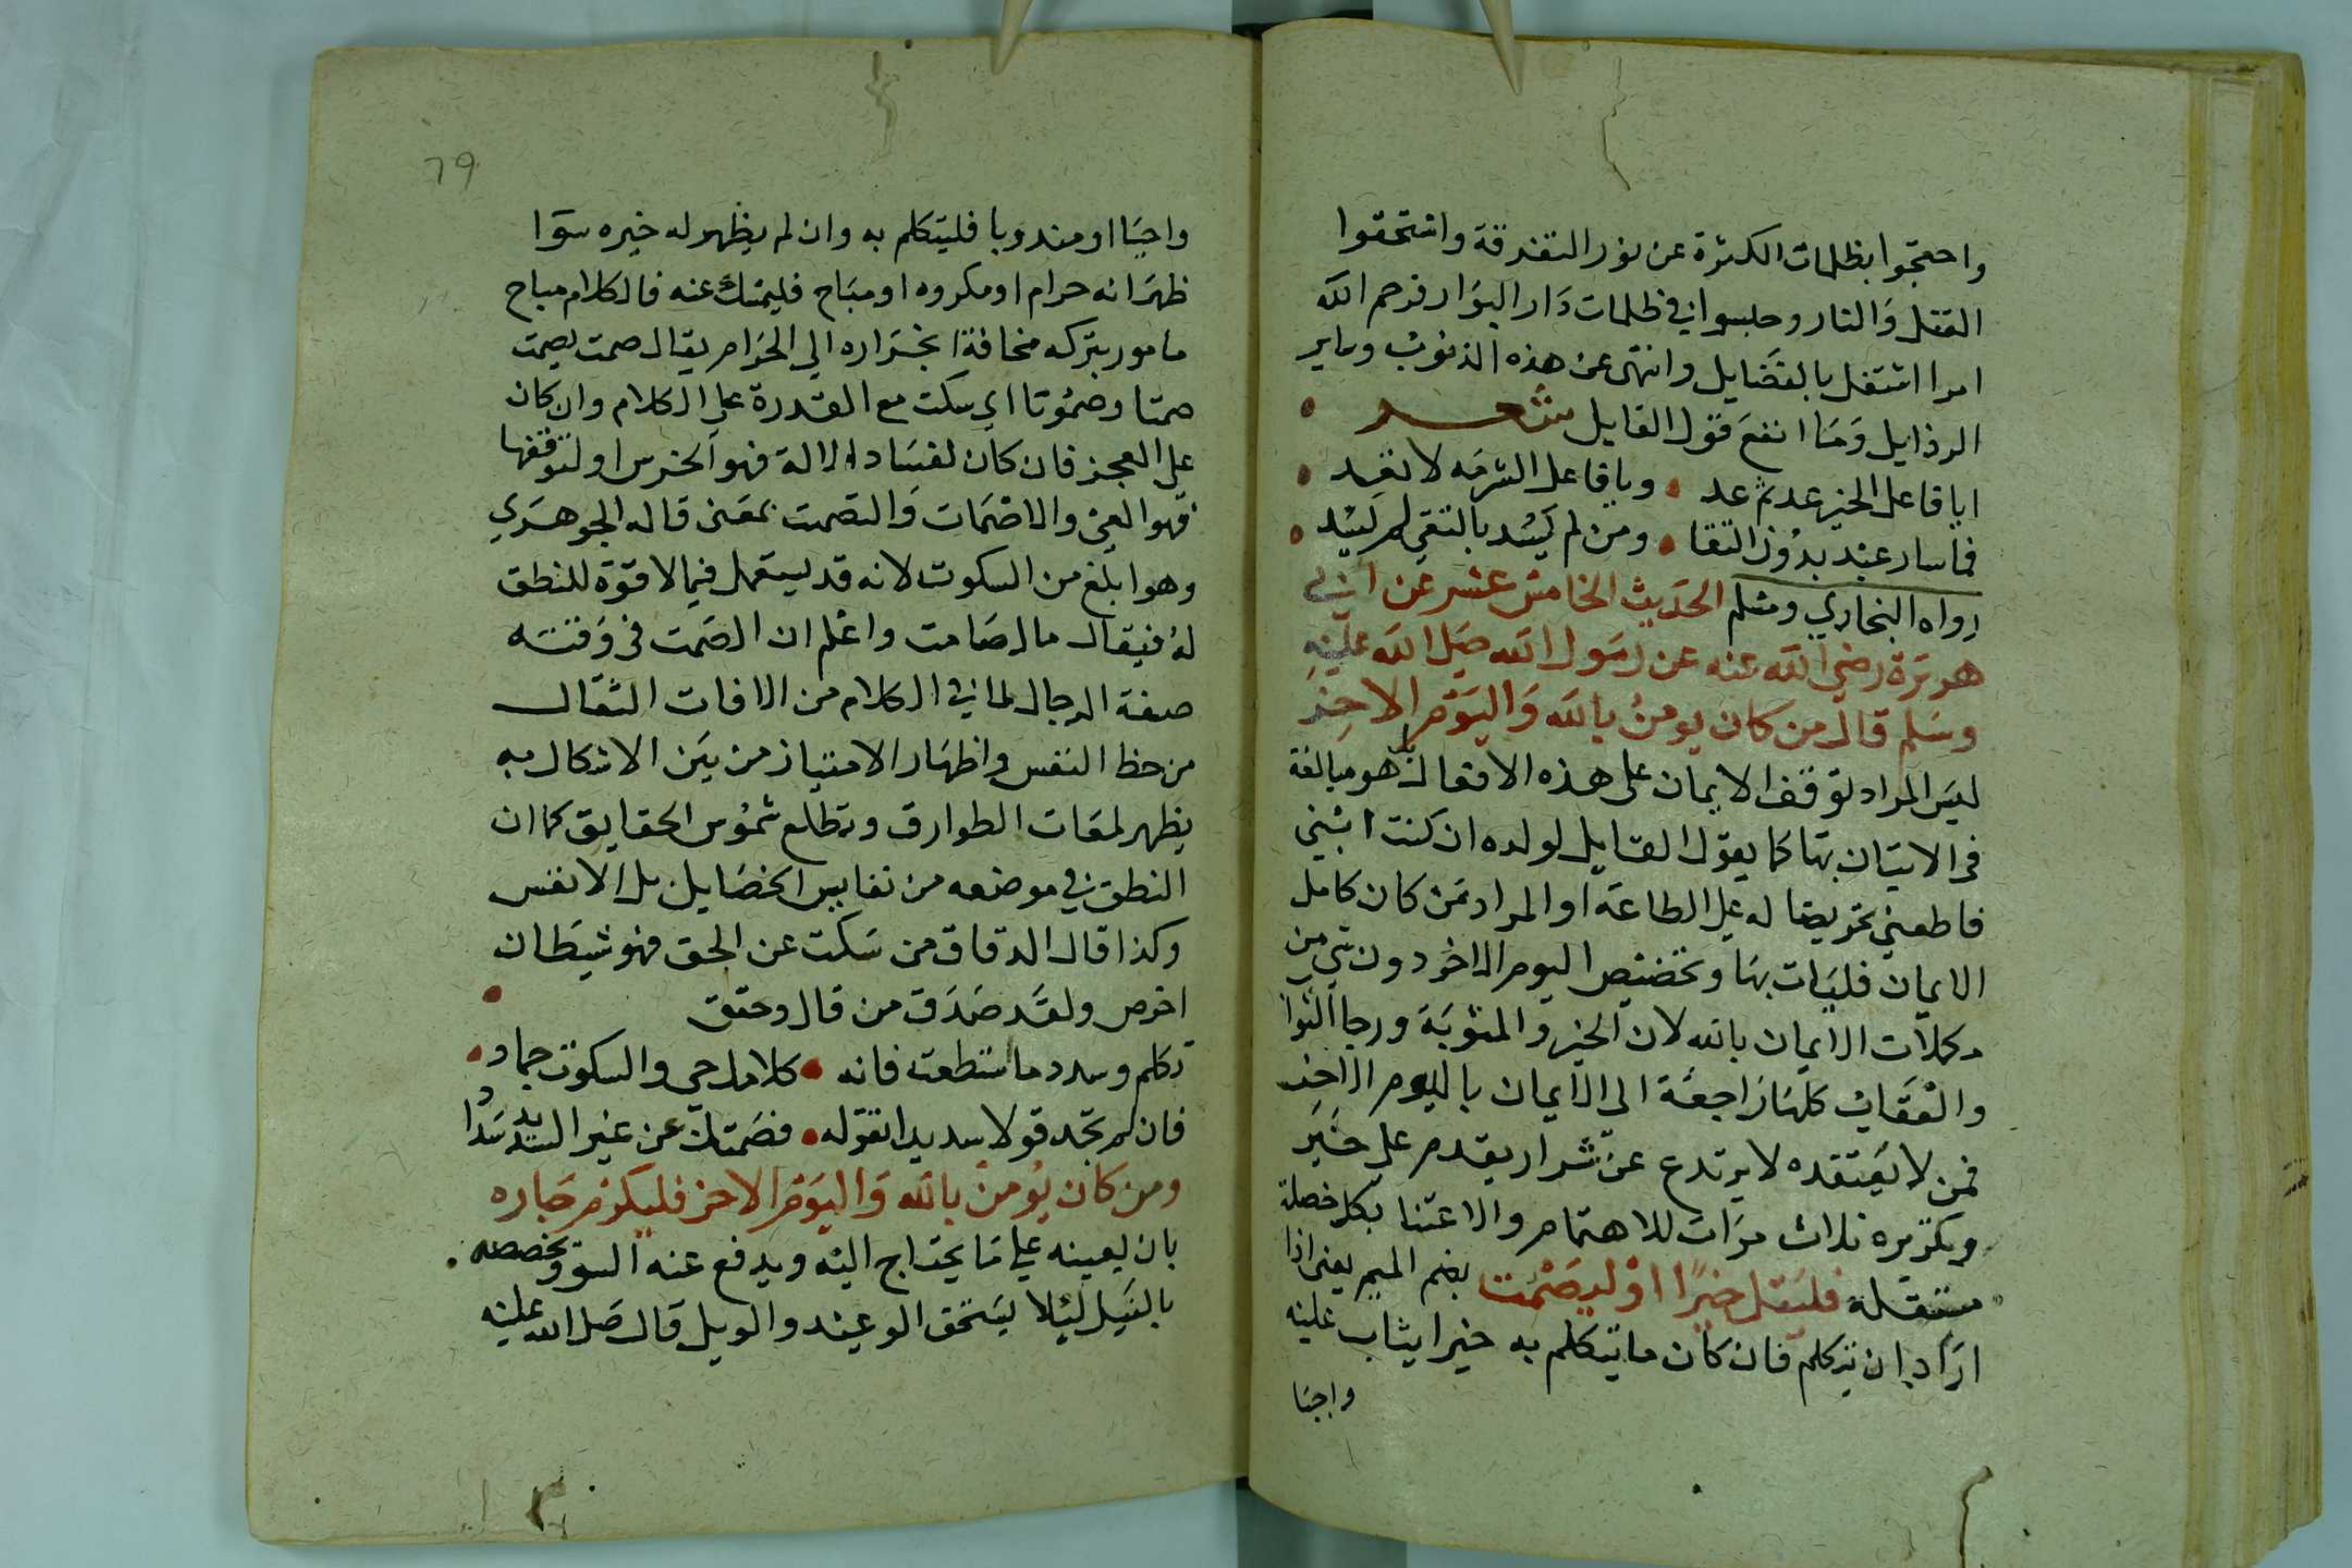 واحتجبوا بظلمات الكثرة عن نور التفرقة واستحقوا
القتل والنار وحبسوا في ظلمات دار البوار فرحم الله
امرا اشتغل بالفضايل وانتهى عن هذه الذنوب وساير
الرذايل وما انفع قول القايل شعر
ايا فاعل الخير عد ثم عد • ويا فاعل الشر مه لا تعد •
فما ساد عبد بدون التقا • ومن لم يسد بالتقي لم يسد •
رواه البخاري ومسلم الحديث الخامس عشر عن ابي
هريرة رضي الله عنه عن رسول الله صلى الله عليه
وسلم قال من كان يومن بالله واليوم الاخر
ليس المراد توقف الايمان على هذه الافعال بل هو مبالغة
في الاتيان بها كما يقول القايل لولده ان كنت ابني
فاطعني تحريضا له على الطاعة او المراد من كان كامل
الايمان فليات بها وتخصيص اليوم الاخر دون شي من
مكملات الايمان بالله لان الخير والمثوبة ورجا الثوا
والعقاب كلها راجعة الى الايمان باليوم الاخر
فمن لا يعتقده لا يرتدع عن شر او يقدم على خير
وتكريره ثلاث مرات للاهتمام والاعتنا بكل خصلة
مستقلة فليقل خيرا او ليصمت بضم الميم يعنى اذا
اراد ان يتكلم فان كان ما يتكلم به خيرا يثاب عليه
واجبا
79
واجبا او مندوبا فليتكلم به وان لم يظهر له خيره سوا
ظهر انه حرام او مكروه او مباح فليمسك عنه فالكلام مباح
مامور بتركه مخافة انجراره الي الحرام يقال صمت يصمت
صمتا وصموتا اي سكت مع القدرة على الكلام وان كان
على العجز فان كان لفساد الالة فهو الخرس او لتوقفها
فهو العي والاصمات والتصمت بمعنى قاله الجوهري
وهو ابلغ من السكوت لانه قد يستعمل فيما لا قوة للنطق
له فيقال مال صامت واعلم ان الصمت في وقته
صفة الرجال لما في الكلام من الافات الثقال
من حظ النفس واظهار الامتياز من بين الاشكال به
يظهر لمعات الطوارق وتطلع شموس الحقايق كما ان
النطق في موضعه من نفايس الخصايل بل الانفس
وكذا قال الدقاق من سكت عن الحق فهو شيطان
اخرص ولقد صدق من قال وحقق •
تكلم وسدد ما استطعت فانه • كلامك حي والسكوت جماد •
فان لم تجد قولا سديدا تقوله • فصمتك عن غير السديد سداد
ومن كان يومن بالله واليوم الاخر فليكرم جاره
بان يعينه على ما يحتاج اليه ويدفع عنه السو ويخصصه
بالنيل ليلا يستحق الوعيد والويل قال صلى الله عليه